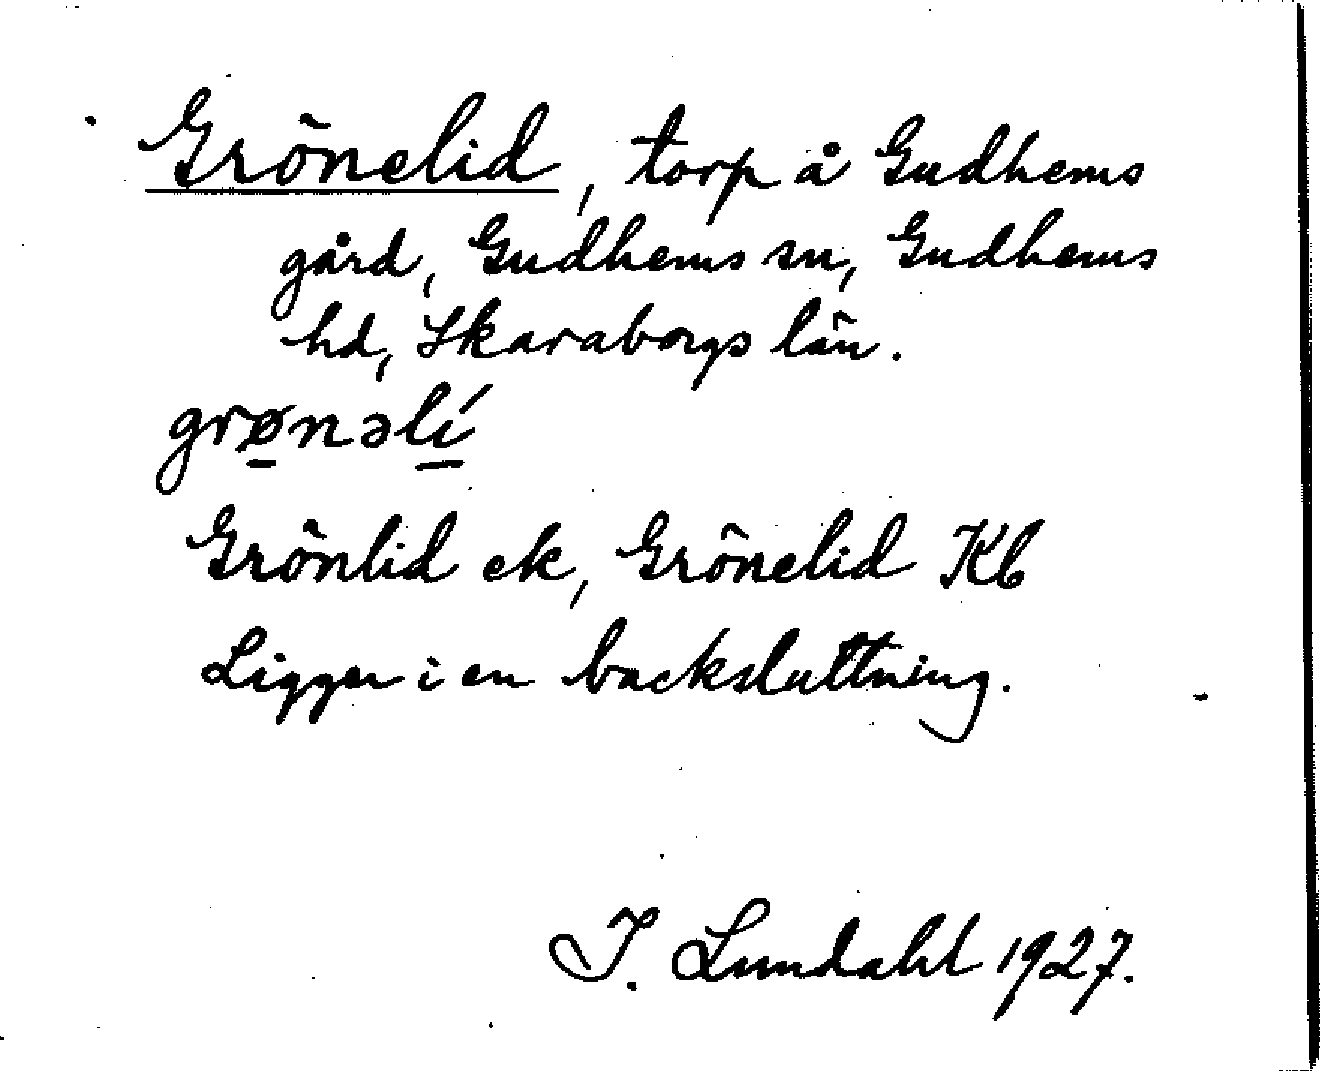 Grönelid, torp å Gudhems
gård, Gudhems sn, Gudhems
hd, Skaraborgs län.
grø̱nəlí̱
Grönlid ek, Grönelid Kb
Ligger i en backsluttning.
I. Lundahl 1927.